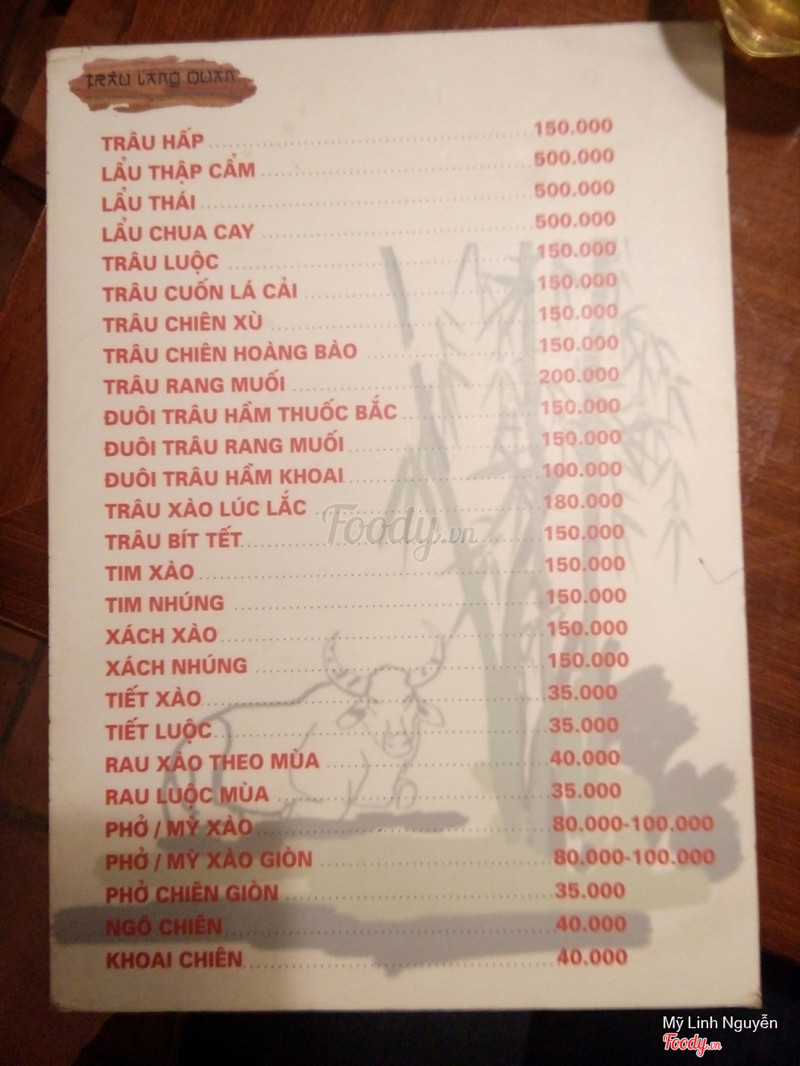 TRÂU LANG QUÁN
TRÂU HẤP 150.000
LẨU THẬP CẨM 500.000
LẨU THÁI 500.000
LẨU CHUA CAY 500.000
TRÂU LUỘC 150.000
TRÂU CUỐN LÁ CẢI 150.000
TRÂU CHIÊN XÙ 150.000
TRÂU CHIÊN HOÀNG BÀO 150.000
TRÂU RANG MUỐI 200.000
ĐUÔI TRÂU HẦM THUỐC BẮC 150.000
ĐUÔI TRÂU RANG MUỐI 150.000
ĐUÔI TRÂU HẦM KHOAI 100.000
TRÂU XÀO LÚC LẮC 180.000
TRÂU BÍT TẾT 150.000
TIM XÀO 150.000
TIM NHÚNG 150.000
XÁCH XÀO 150.000
XÁCH NHÚNG 150.000
TIẾT XÀO 35.000
TIẾT LUỘC 35.000
RAU XÀO THEO MÙA 40.000
RAU LUỘC MÙA 35.000
PHỞ / MỲ XÀO 80.000-100.000
PHỞ / MỲ XÀO GIÒN 80.000-100.000
PHỞ CHIÊN GIÒN 35.000
NGÔ CHIÊN 40.000
KHOAI CHIÊN 40.000
Foody.vn
Mỹ Linh Nguyễn
Foody.vn